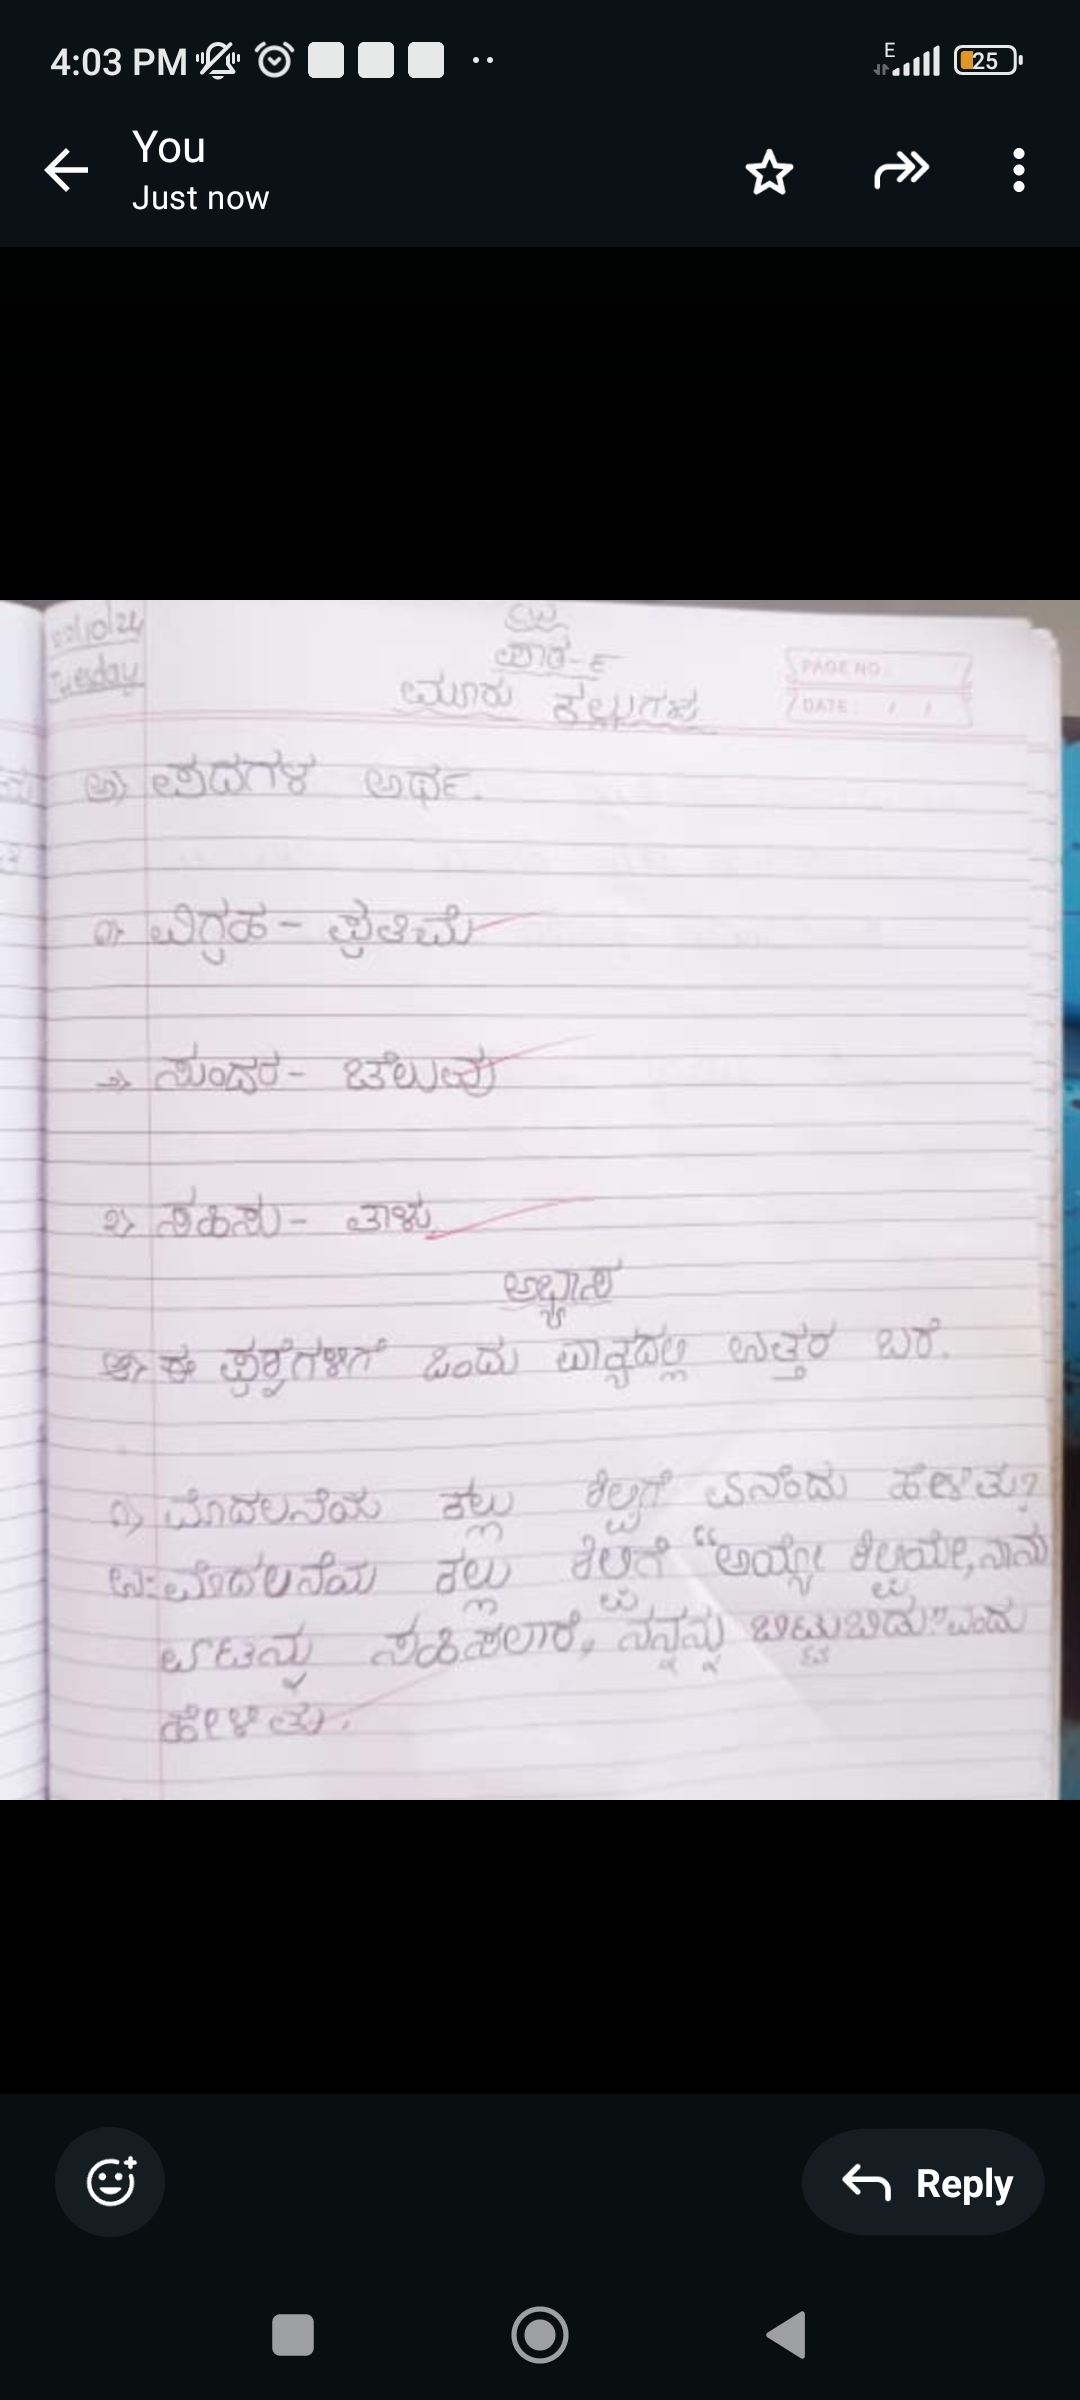 4:03 PM
E
25
You
Just now
22/10/24
Tuesday
ಪಾಠ-೯
ಮೂರು ಕಲ್ಲುಗಳು
PAGE NO.
DATE / /
ಅ) ಪದಗಳ ಅರ್ಥ.
೧) ವಿಗ್ರಹ - ಪ್ರತಿಮೆ
೨) ಸುಂದರ - ಚೆಲುವು
೩) ಸಹಿಸು - ತಾಳು
ಅಭ್ಯಾಸ
ಆ) ಈ ಪ್ರಶ್ನೆಗಳಿಗೆ ಒಂದು ವಾಕ್ಯದಲ್ಲಿ ಉತ್ತರ ಬರೆ.
೧) ಮೊದಲನೆಯ ಕಲ್ಲು ಶಿಲ್ಪಿಗೆ ಏನೆಂದು ಹೇಳಿತು?
ಉ: ಮೊದಲನೆಯ ಕಲ್ಲು ಶಿಲ್ಪಿಗೆ "ಅಯ್ಯೋ ಶಿಲ್ಪಿಯೇ, ನಾನು
ಏಟನ್ನು ಸಹಿಸಲಾರೆ, ನನ್ನನ್ನು ಬಿಟ್ಟುಬಿಡು" ಎಂದು
ಹೇಳಿತು.
Reply